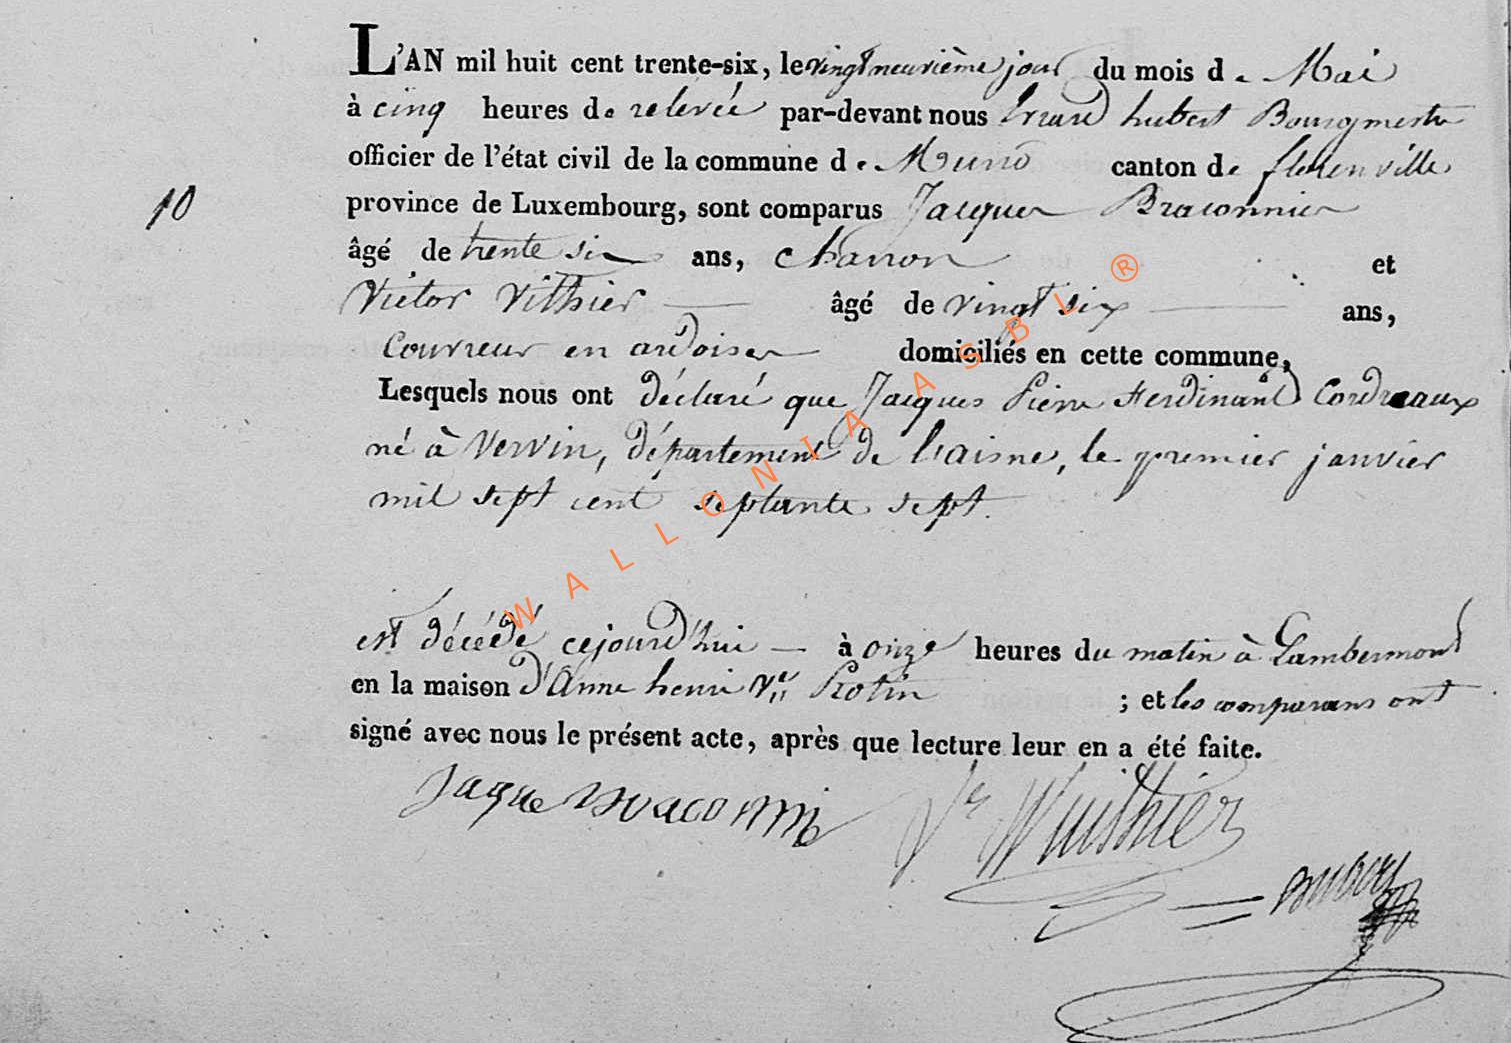 L'AN mil huit cent trente-six, le vingt neuvième jour du mois de Mai
à cinq heures de relevée par-devant nous Erard hubert Bourgmestre
officier de l'état civil de la commune de Muno canton de florenville
10
province de Luxembourg, sont comparus Jacques Braconnier
âgé de trente six ans, charron et
Victor Vithier âgé de vingt six ans,
Couvreur en ardoises domiciliés en cette commune,
Lesquels nous ont déclaré que Jacques Pierre Ferdinand Cordeaux
né à Vervin, département de l'aisne, le premier janvier
mil sept cent septante sept.
est décédé cejourd'hui à onze heures du matin à Lambermont
en la maison d'Anne henri Ve Protin ; et les comparans ont
signé avec nous le présent acte, après que lecture leur en a été faite.
Jaque Braconni Vr Wuithier
hubert
WALLONIA ASBL ®